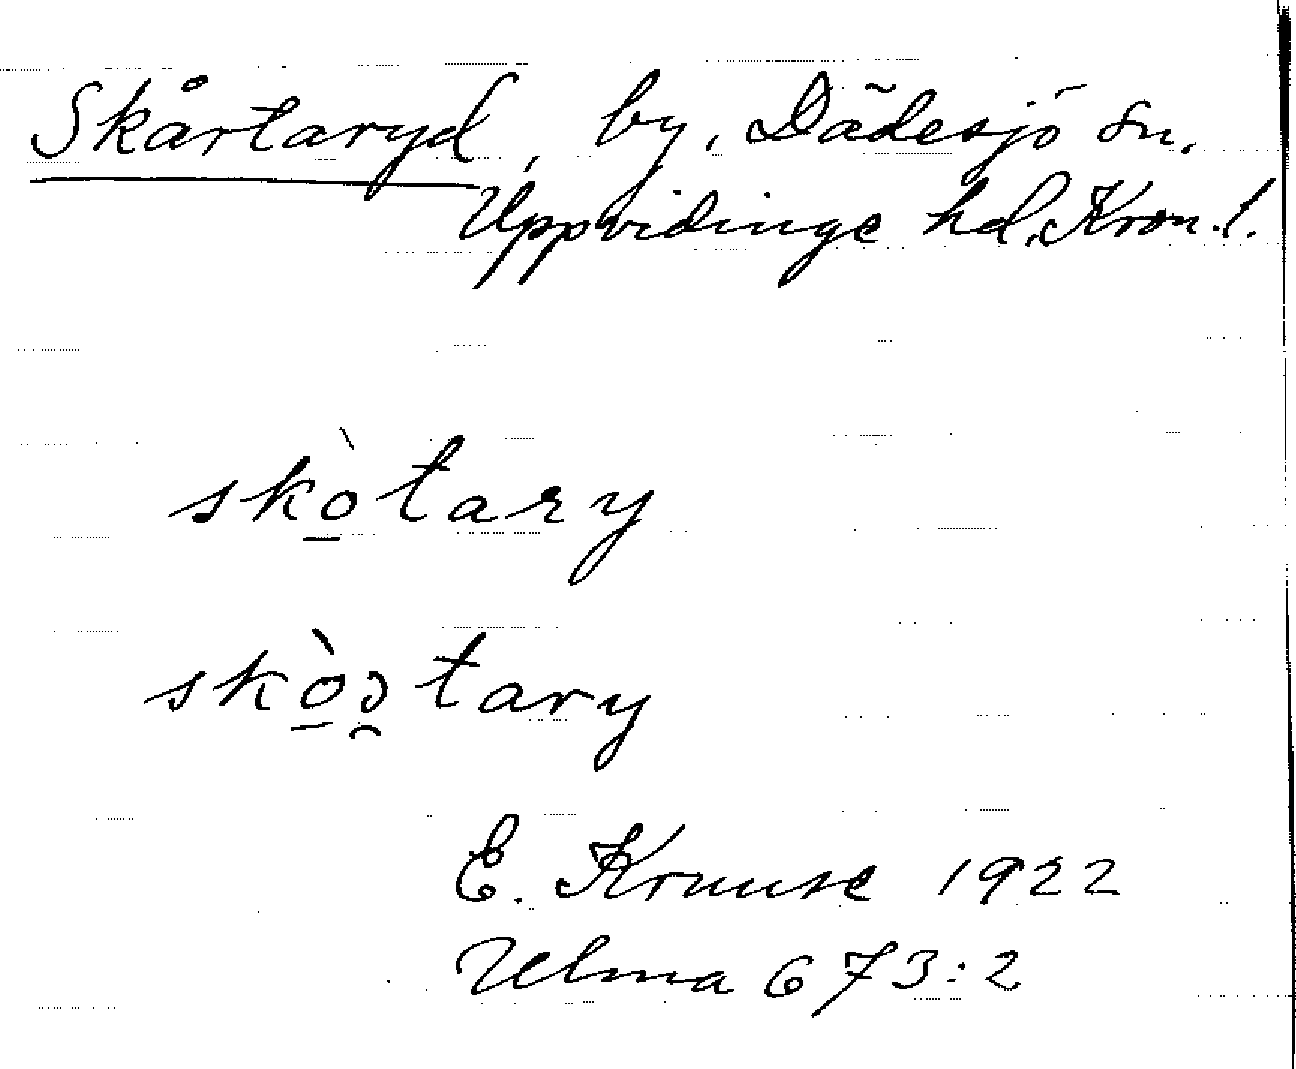 Skårtaryd, by, Dädesjö sn.
Uppvidinge hd, Kron. l.
skò̲tary
skò̲ɔ̯tary
E. Kruuse 1922
Ulma 673:2